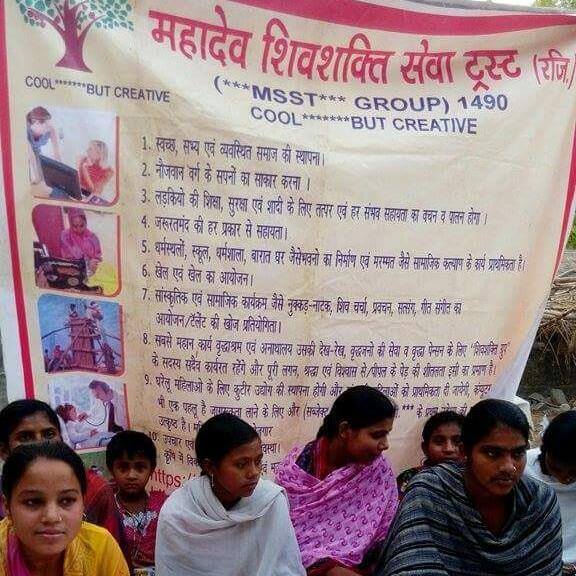 महादेव शिवशक्ति सेवा ट्रस्ट (रजि.)
COOL*******BUT CREATIVE
(***MSST*** GROUP) 1490
COOL*******BUT CREATIVE
1. स्वच्छ, सभ्य एवं व्यवस्थित समाज की स्थापना।
2. नौजवान वर्ग के सपनों का साकार करना ।
3. लड़कियों की शिक्षा, सुरक्षा एवं शादी के लिए तत्पर एवं हर संभव सहायता का वचन व पालन होगा ।
4. जरूरतमंद की हर प्रकार से सहायता।
5. धर्मस्थलों, स्कूल, धर्मशाला, बारात घर जैसेभवनो का निर्माण एवं मरम्मत जैसे सामाजिक कल्याण के कार्य प्राथमिकता है।
6. खेल एवं खेल का आयोजन।
7. सांस्कृतिक एवं सामाजिक कार्यक्रम जैसे नुक्कड़-नाटक, शिव चर्चा, प्रवचन, सत्संग, गीत संगीत का
आयोजन/टॅलेंट की खोज प्रतियोगिता।
8. सबसे महान् कार्य वृद्धाश्रम एवं अनाथालय उसकी देख-रेख, वृद्धजनो की सेवा व वृद्धा पेन्सन के लिए "शिवशक्ति ग्रुप"
के सदस्य सदैव कार्यरत रहेंगे और पूरी लगन, श्रद्धा एवं विश्वास से/पीपल के पेड़ की शीतलता इसी का प्रमाण है।
9. घरेलू महिलाओ के लिए कुटीर उद्योग की स्थापना होगी और महिलाओं को प्राथमिकता दी जायेगी, कंप्यूटर
भी एक पहलू है जागरूकता लाने के लिए और *** के
उत्कृष्ट है।
10. उपचार एवं
https:/